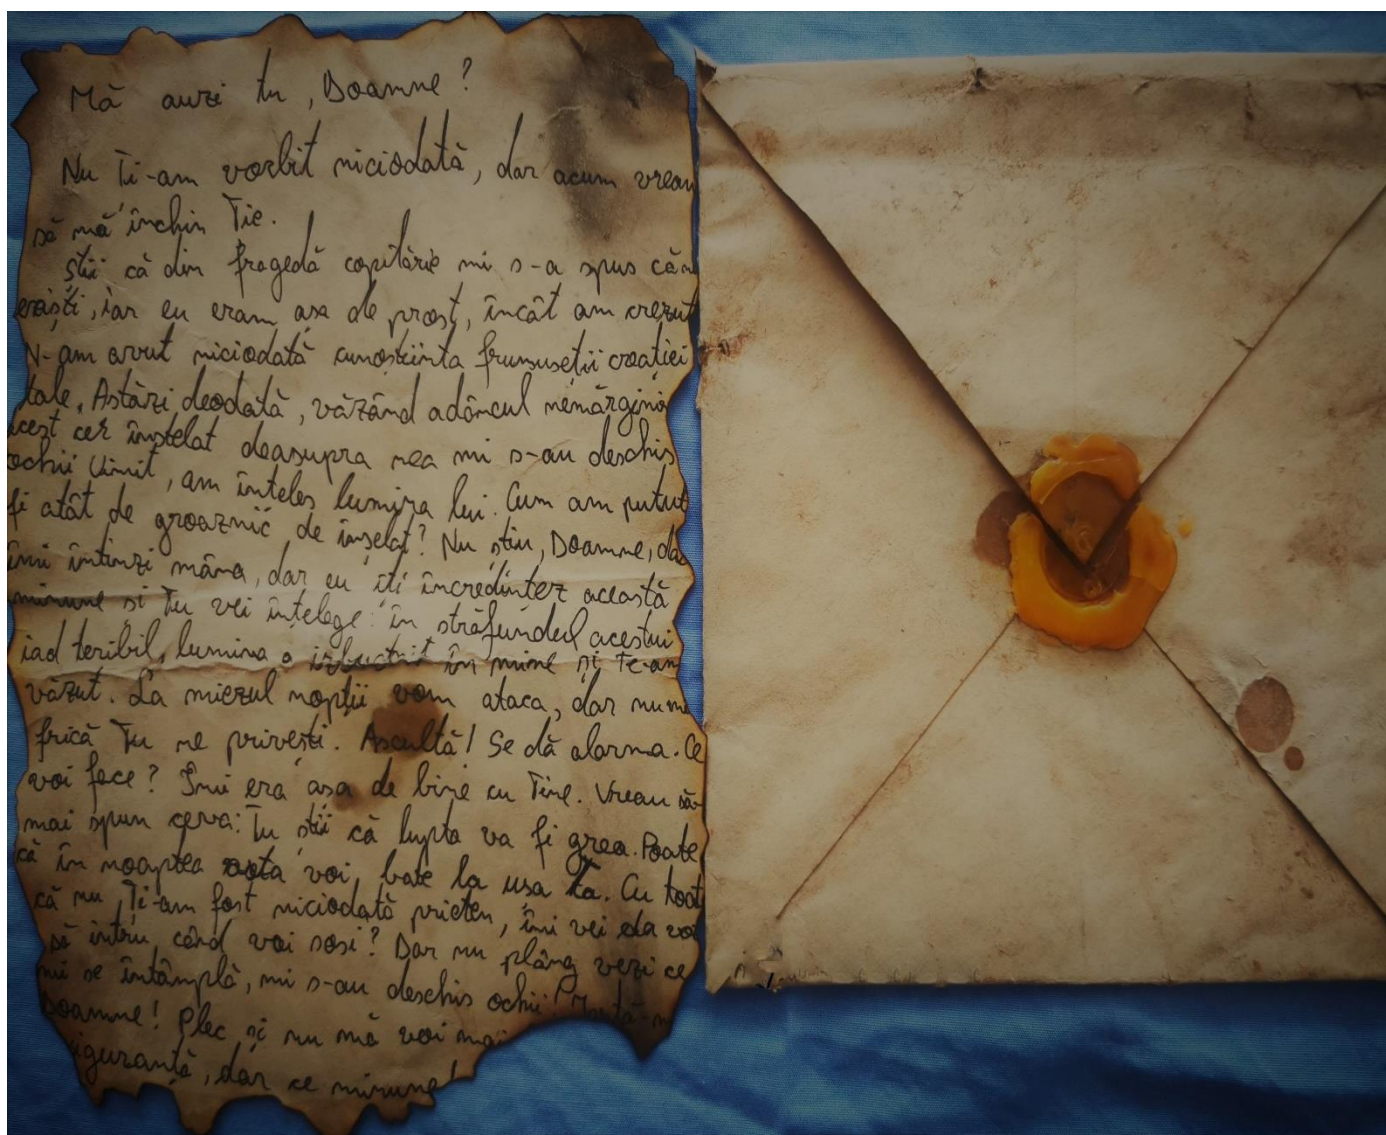 Mă auzi tu, Doamne?
Nu Ti-am vorbit niciodată, dar acum vreau
să mă închin Tie.
știi că din fragedă copilărie mi s-a spus că nu
exiști, iar eu eram așa de prost, încât am crezut
N-am avut niciodată cunoștiința frumuseții creației
tale. Astăzi deodată, văzând adâncul nemărginis
acest cer înstelat deasupra mea mi s-au deschis
ochii Uimit, am înteles lumina lui. Cum am putut
fi atât de groaznic de înșelat? Nu știu, Doamne, da
îmi întinzi mâna, dar eu îti încredintez această
minune si Tu vei întelege: în străfundul acestui
iad teribil, lumina a izbucnit în mine și Te-am
văzut. La miezul nopții vom ataca, dar nu mi
frică Tu ne privești. Ascultă! Se dă alarma. Ce
voi face? Îmi era așa de bine cu Tine. Vreau să
mai spun ceva: Tu știi că lupta va fi grea. Poate
că în noaptea asta voi bate la usa Ta. Cu toat
că nu Ti-am fost niciodată prieten, îmi vei da voi
să intru, când voi sosi? Dar nu plâng vezi ce
mi se întâmplă, mi s-au deschis ochii!
Doamne! Plec și nu mă voi mai
iguranță, dar ce minune!